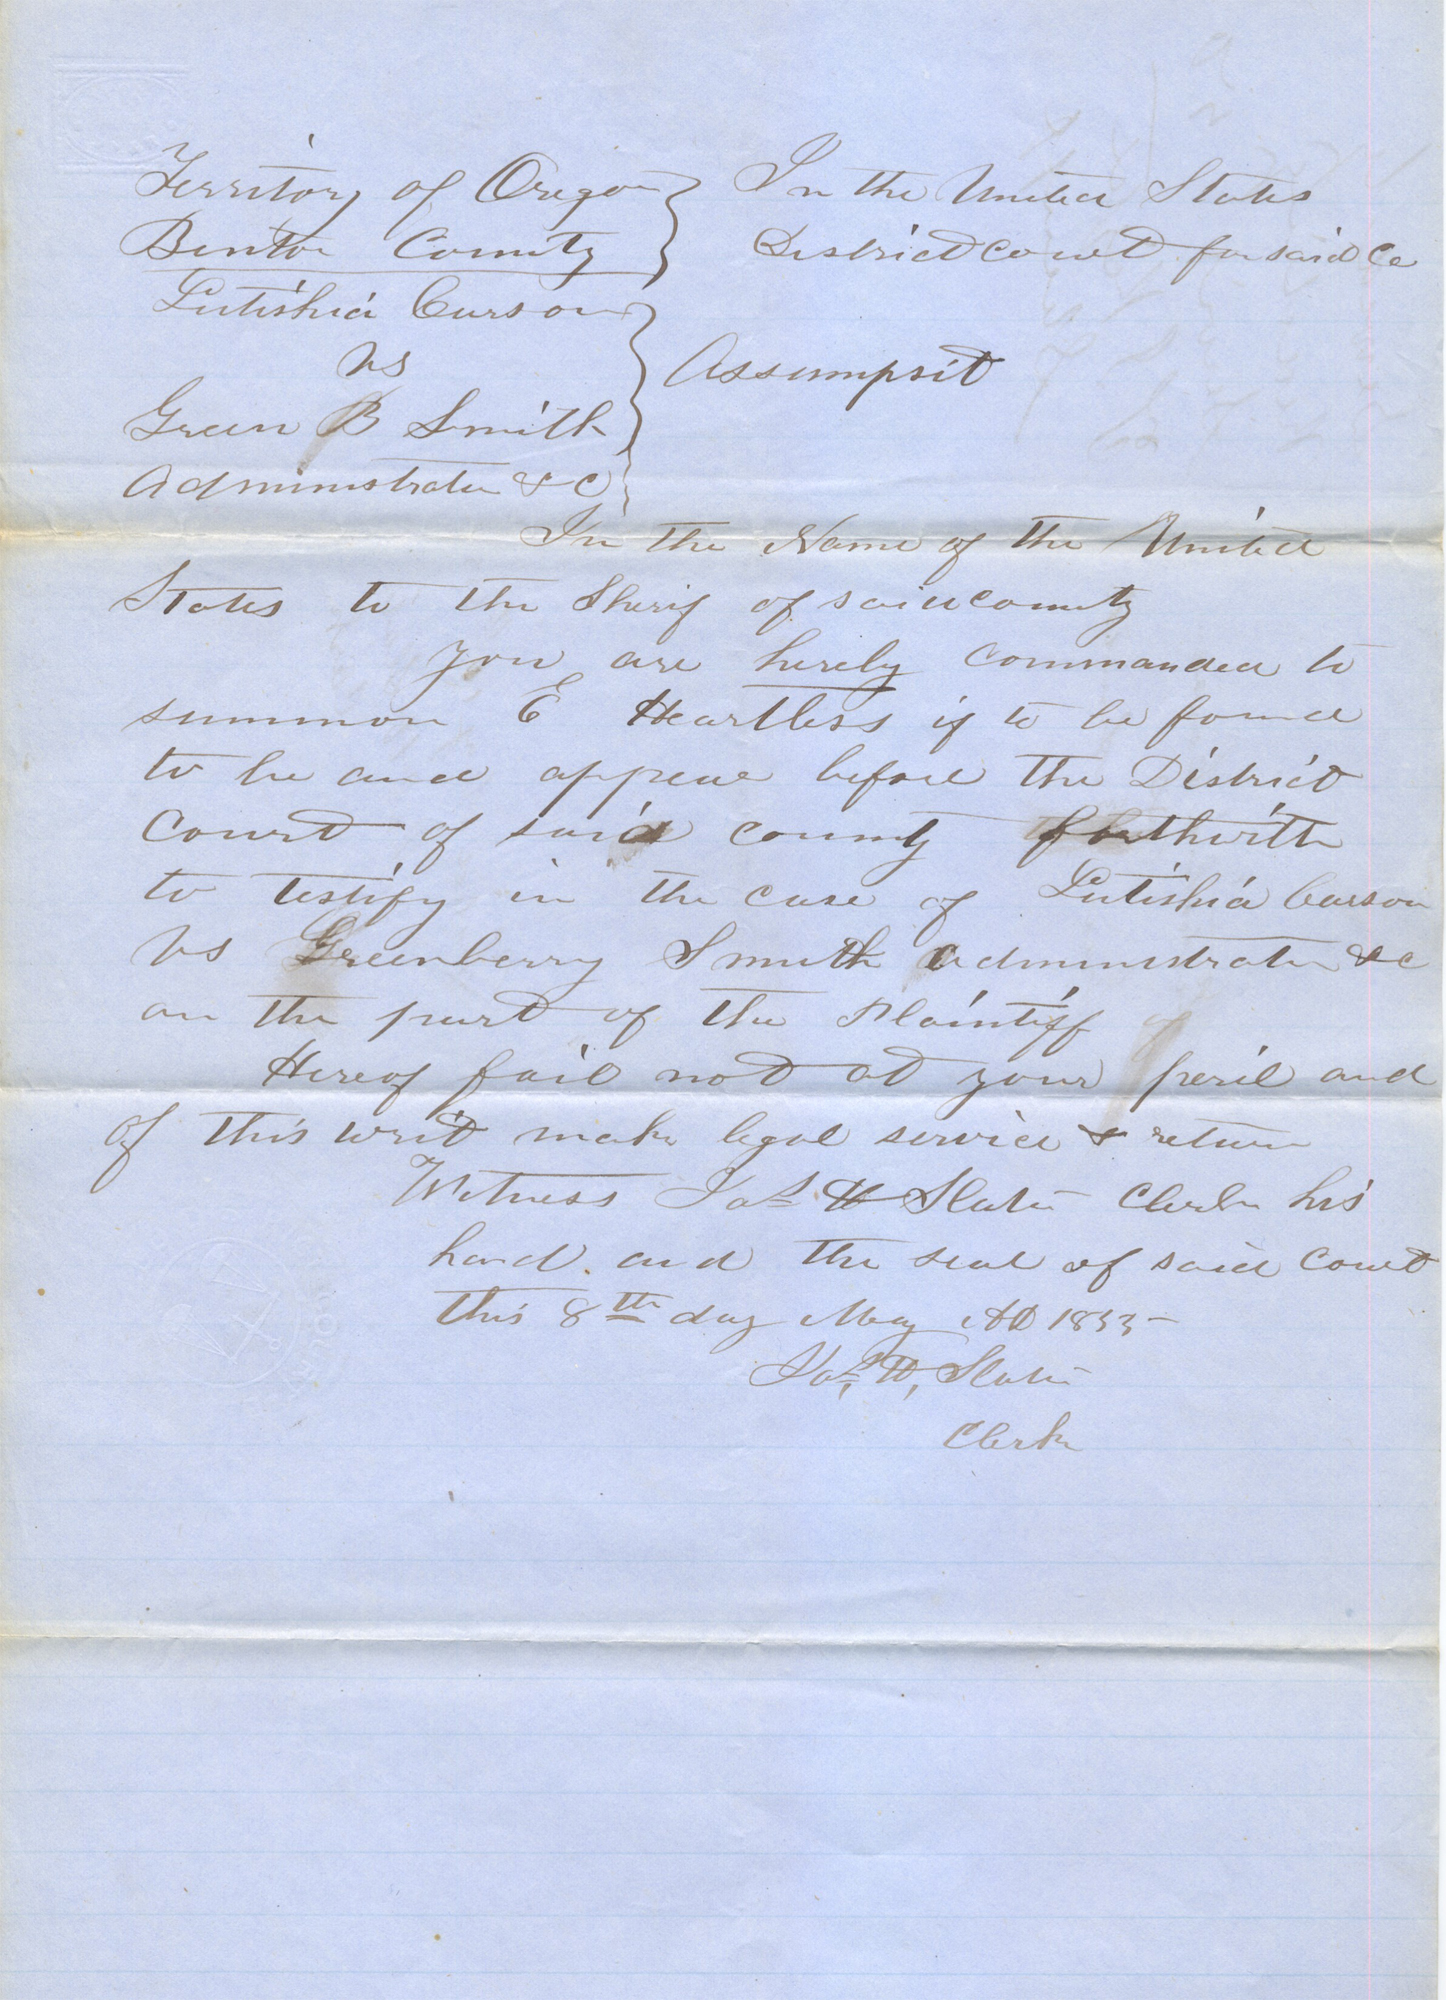 Territory of Oregon } In the United States
Benton County } District Court for said Co
Lutishia Carson }
vs } Assumpsit
Green B Smith }
Administrator &c }
In the Name of the United
States to the Sherif of said county
You are hereby commanded to
summon E Heartless if to be found
to be and appear before the District
Court of said county forthwith
to testify in the case of Lutishia Carson
vs Greenberry Smith administrator &c
on the part of the Plaintiff
Hereof fail not at your peril and
of this writ make legal service & return
Witness Jas H Slater Clerk his
hand and the seal of said Court
this 8th day May AD 1855
Jas. H, Slater
Clerk